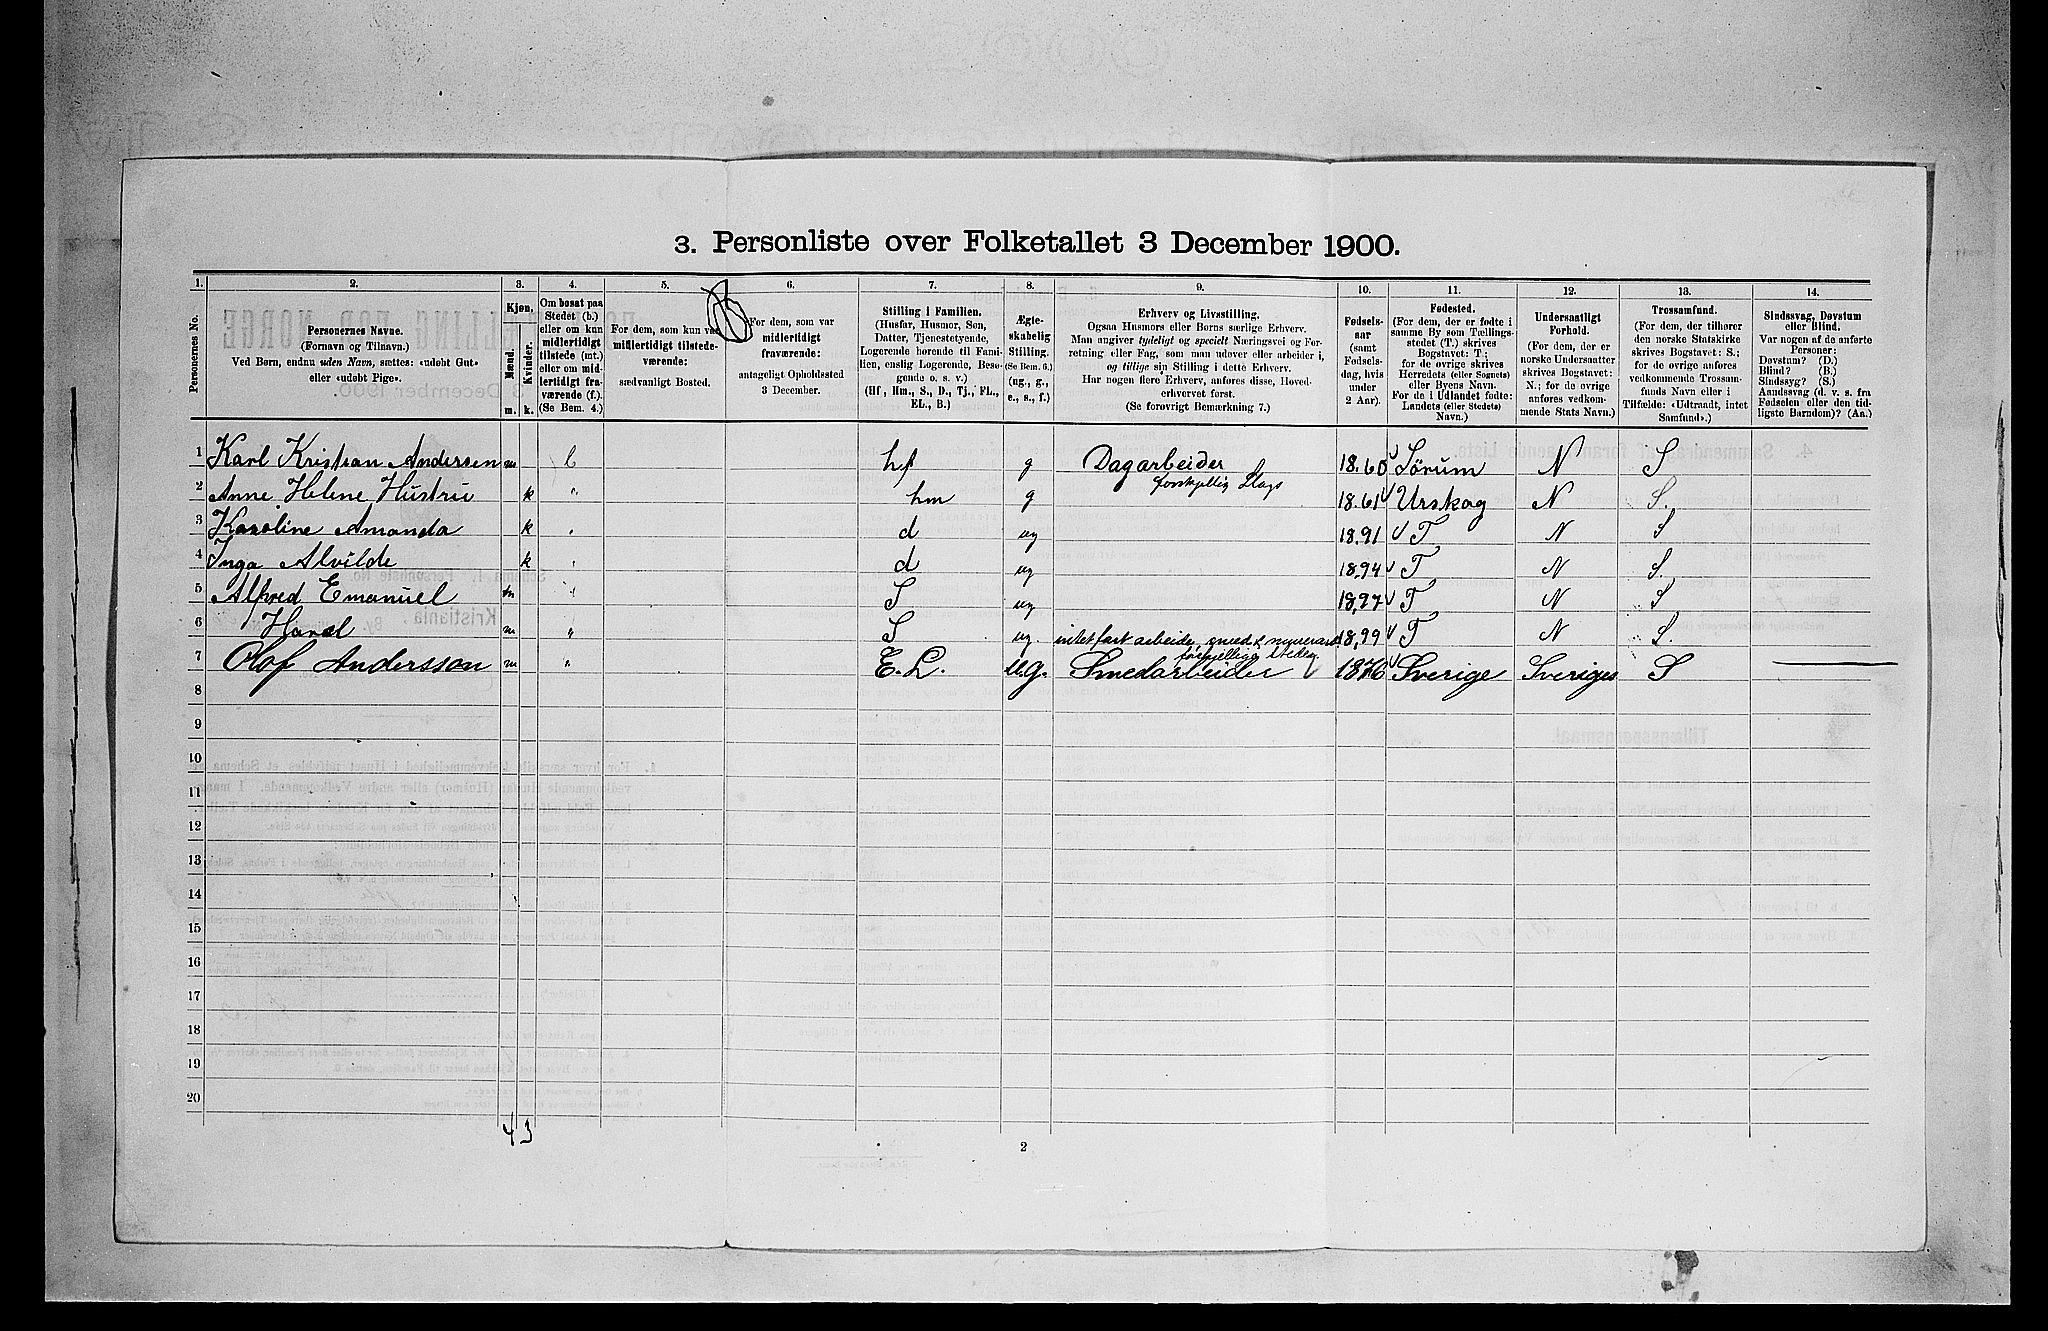 3. Personliste over Folketallet 3 December 1900.
1. 2. 3. 4. 5. 6. 7. 8. 9. 10. 11. 12. 13. 14.
Personernes No.
Personernes Navne.
(Fornavn og Tilnavn.)
Ved Børn, endnu uden Navn, sættes: «udøbt Gut»
eller «udøbt Pige».
Kjøn.
Mænd.
Kvinder.
m. k.
Om bosat paa
Stedet (b.)
eller om kun
midlertidigt
tilstede (mt.)
eller om mid-
lertidigt fra-
værende (f.).
(Se Bem. 4.)
For dem, som kun var
midlertidigt tilstede-
værende:
sædvanligt Bosted.
For dem, som var
midlertidigt
fraværende:
antageligt Opholdssted
3 December.
Stilling i Familien.
(Husfar, Husmor, Søn,
Datter, Tjenestetyende,
Logerende hørende til Fami-
lien, enslig Logerende, Besø-
gende o. s. v.)
(Hf, Hm., S., D., Tj., FL.,
EL., B.)
Ægte-
skabelig
Stilling.
(Se Bem. 6.)
(ug., g.,
e., s., f.)
Erhverv og Livsstilling.
Ogsaa Husmors eller Børns særlige Erhverv.
Man angiver tydeligt og specielt Næringsvei og For-
retning eller Fag, som man udøver eller arbeider i,
og tillige sin Stilling i dette Erhverv.
Har nogen flere Erhverv, anføres disse, Hoved-
erhvervet først.
(Se forøvrigt Bemærkning 7.)
Fødsels-
aar
(samt
Fødsels-
dag, hvis
under
2 Aar).
Fødested.
(For dem, der er fødte i
samme By som Tællings-
stedet (T.) skrives
Bogstavet: T;
for de øvrige skrives
Herredets (eller Sognets)
eller Byens Navn.
For de i Udlandet fødte:
Landets (eller Stedets)
Navn.)
Undersaatligt
Forhold.
(For dem, der er
norske Undersaatter
skrives Bogstavet:
N.; for de øvrige
anføres vedkom-
mende Stats Navn.)
Trossamfund.
(For dem, der tilhører
den norske Statskirke
skrives Bogstavet: S.;
for de øvrige anføres
vedkommende Trossam-
funds Navn eller i
Tilfælde: «Udtraadt, intet
Samfund».)
Sindssvag, Døvstum
eller Blind.
Var nogen af de anførte
Personer:
Døvstum? (D.)
Blind? (B.)
Sindssyg? (S.)
Aandssvag (d. v. s. fra
Fødselen eller den tid-
ligste Barndom)? (Aa.)
1 Karl Kristian Andersen m b hf g Dagarbeider 1860 Sørum N S
forskjellig Slags
2 Anne Helene Hustru k " hm g 1861 Urskog N S.
3 Karoline Amanda k d ug 1891 T N S
4 Inga Alvilde k d ug 1894 T N S.
5 Alfred Emanuel m S ug 1897 T N S
6 Harald m " S ug. 1899 T N S.
intet fast arbeide, smed &
forskjellige steder
7 Olof Andersson m " E.L. u.g. Smedarbeider 1876 Sverige Sveriges S
8
9
10
11
12
13
14
15
16
17
18
19
20
4 3
2